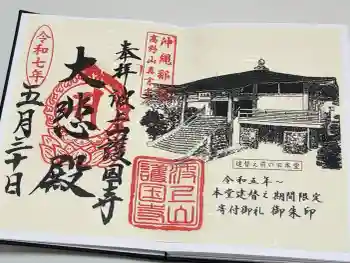 奉拝
沖縄
高野山真言宗
波上護国寺
大悲殿
令和七年
五月三十日
波上山
護国寺
建替え前の旧本堂
令和五年〜
本堂建替え期間限定
寄付御礼 御朱印